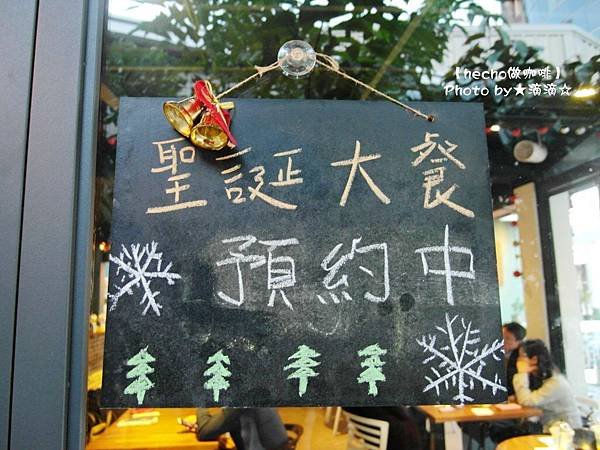 【hecho做咖啡】
Photo by★滴滴☆
聖誕大餐
預約中